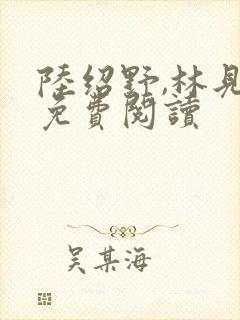 陸紹野,林見
免費閱讀
吴某海